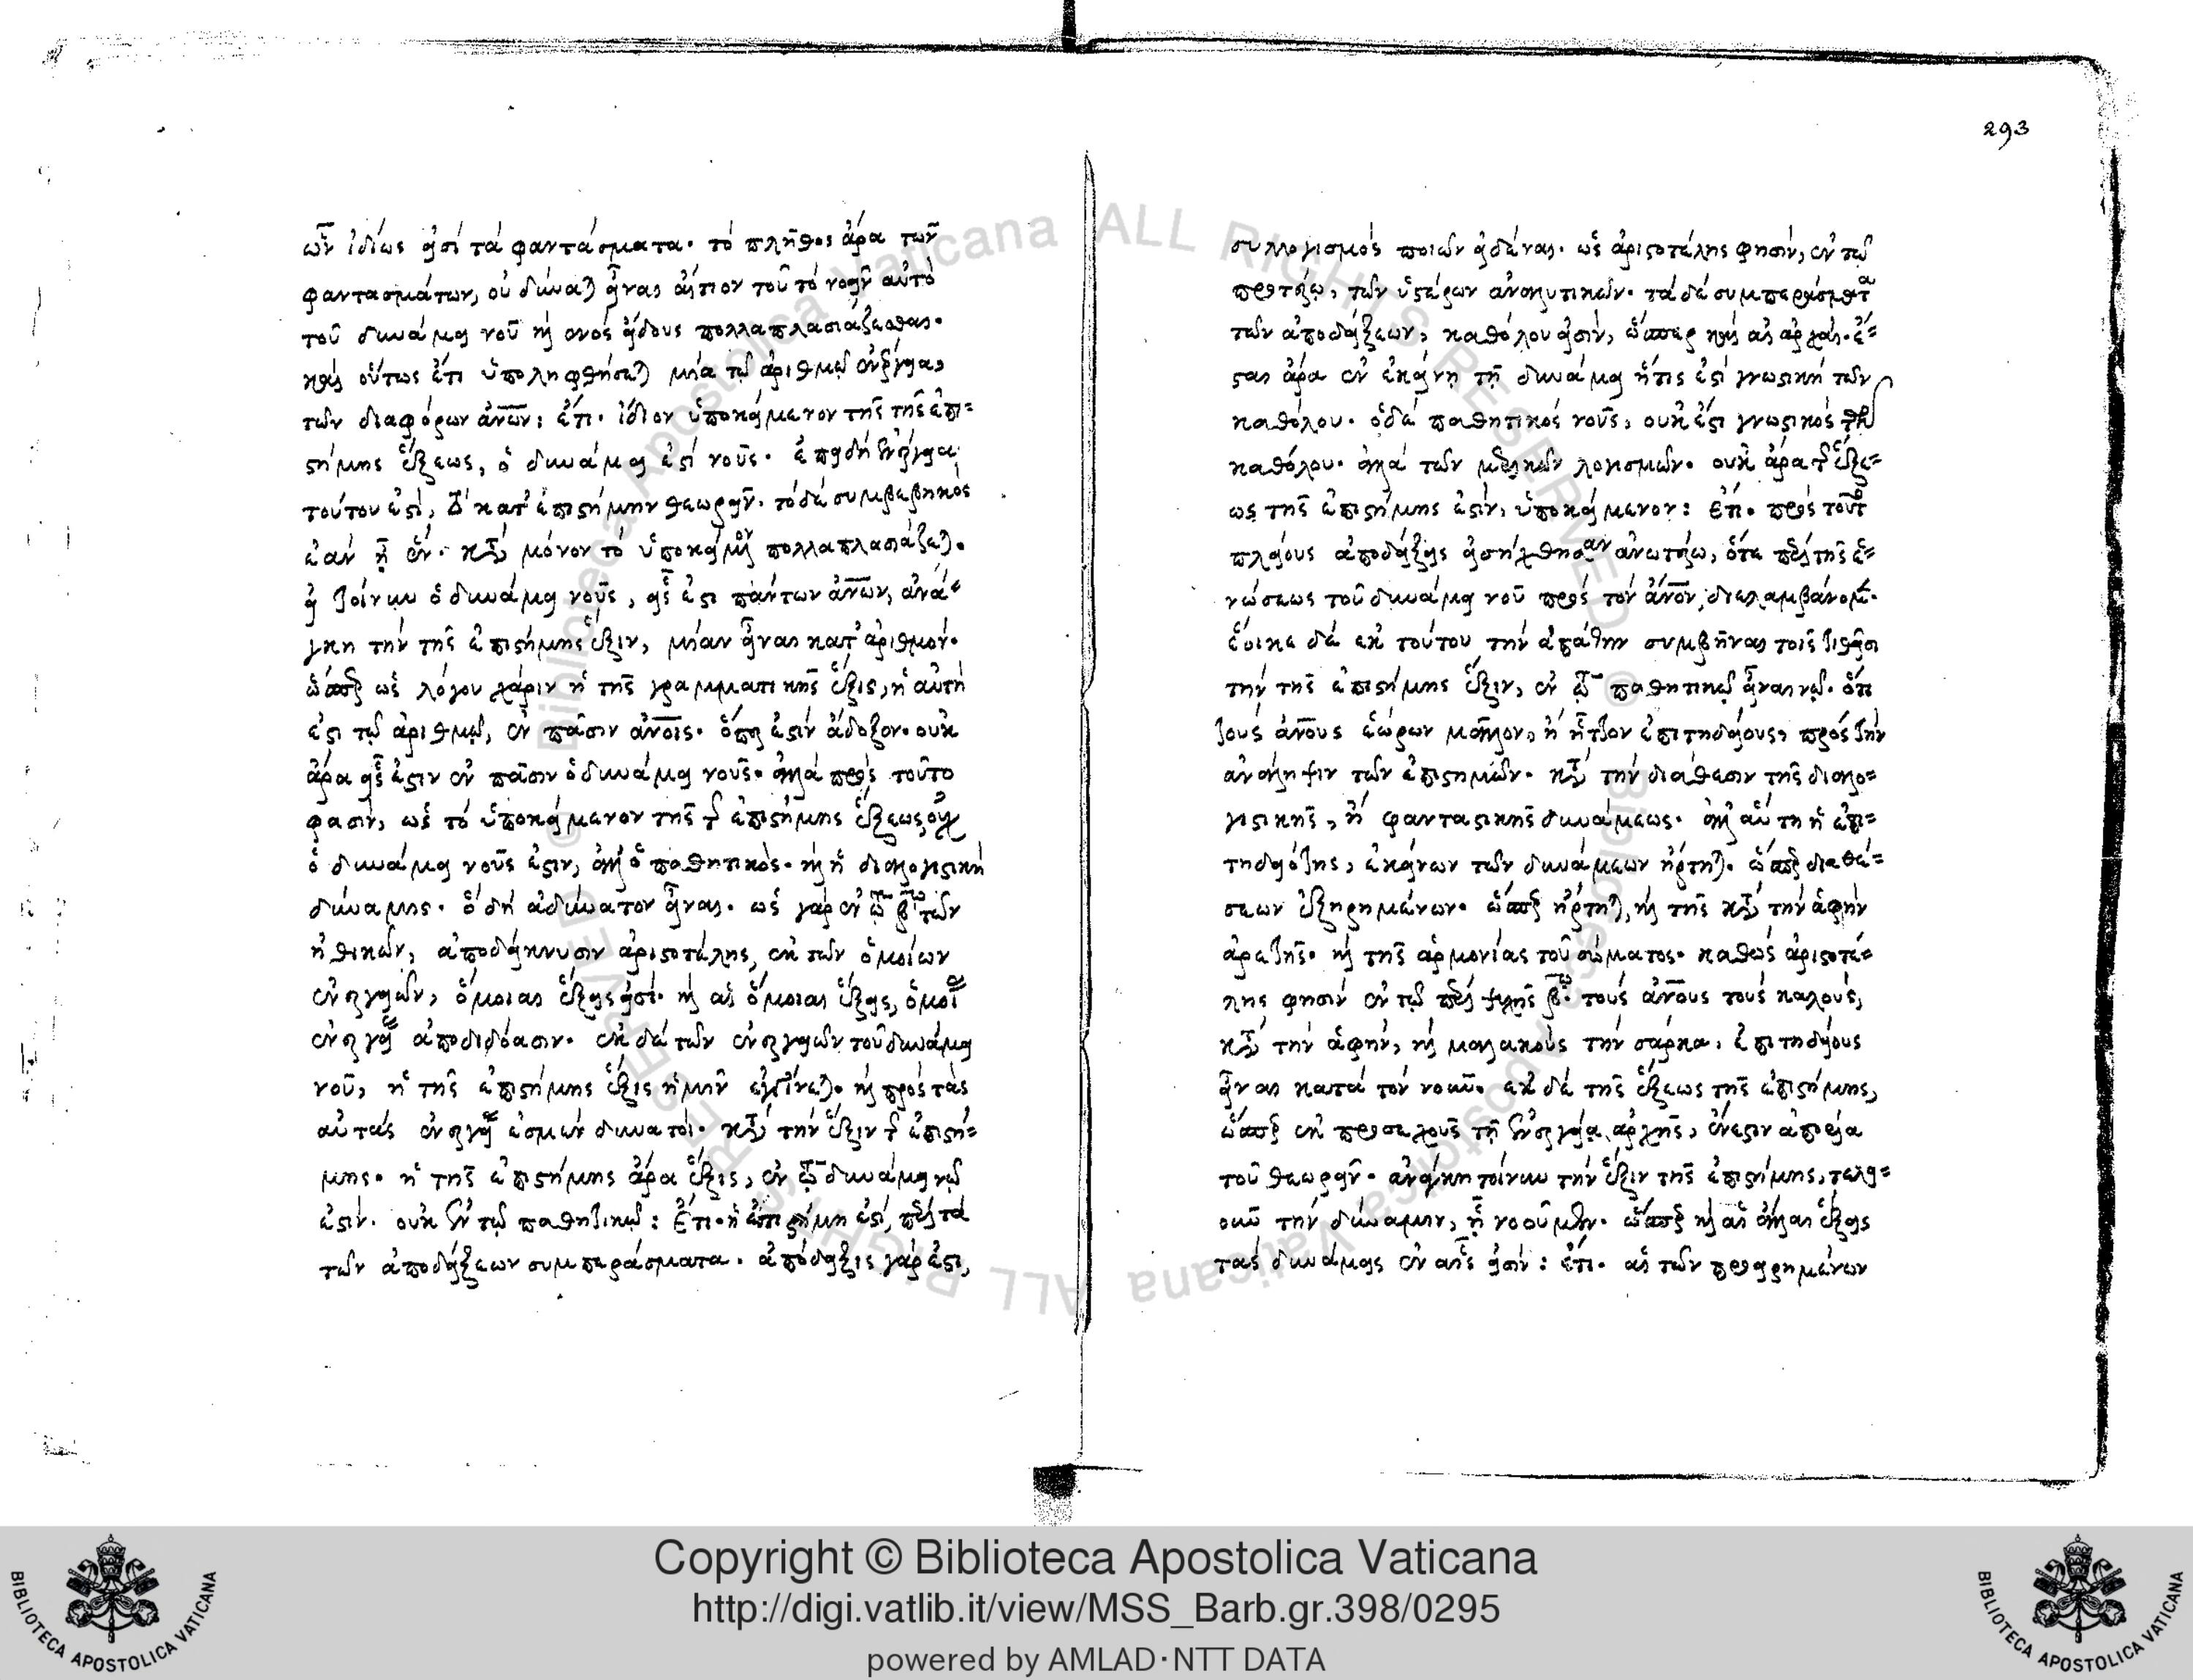 293
ὧν ἰδίως εἰσὶ τὰ φαντάσματα. τὸ πλῆθος ἄρα τῶν
φαντασμάτων, οὐ δύναται εἶναι αἴτιον τοῦ τὸ νοεῖν αὐτὸ
τοῦ δυνάμει νοῦ καὶ ἑνὸς εἴδους πολλαπλασιάζεσθαι.
καὶ οὕτως ἔτι ὑποληφθήσεται μία τῷ ἀριθμῷ ἐνέργεια
τῶν διαφόρων ἀνῶν: ἔτι. ἴδιον ὑποκείμενον τῆς τῆς ἐπι=
στήμης ἕξεως, ὁ δυνάμει ἐστὶ νοῦς. ἐπειδὴ ἐνέργεια
τούτου ἐστὶ, τὸ κατ' ἐπιστήμην θεωρεῖν. τὸ δὲ συμβεβηκὸς
ἐὰν ᾖ ἓν. κατὰ μόνον τὸ ὑποκείμενον πολλαπλασιάζεται.
εἰ τοίνυν ὁ δυνάμει νοῦς, εἷς ἐστι πάντων ἀνῶν, ἀνά=
γκη τὴν τῆς ἐπιστήμης ἕξιν, μίαν εἶναι κατ' ἀριθμόν.
ὥσπερ ὡς λόγου χάριν ἡ τῆς γραμματικῆς ἕξις, ἡ αὐτὴ
ἐστι τῷ ἀριθμῷ, ἐν πᾶσιν ἀνοις. ὅπερ ἐστὶν ἄδοξον. οὐκ
ἄρα εἷς ἐστιν ἐν πᾶσιν ὁ δυνάμει νοῦς. ἀλλὰ πρὸς τοῦτο
φασὶν, ὡς τὸ ὑποκείμενον τῆς τῆς ἐπιστήμης ἕξεως οὐχ
ὁ δυνάμει νοῦς ἐστιν, ἀλλ' ὁ παθητικὸς. καὶ ἡ διαλογιστικὴ
δύναμις. ὃ δὴ ἀδύνατον εἶναι. ὡς γὰρ ἐν τῷ βῳ τῶν
ἠθικῶν, ἀποδείκνυσιν ἀριστοτέλης, ἐκ τῶν ὁμοίων
ἐνεργειῶν, ὅμοιαι ἕξεις εἰσὶ. καὶ αἱ ὅμοιαι ἕξεις, ὁμοίας
ἐνεργείας ἀποδιδόασιν. ἐκ δὲ τῶν ἐνεργειῶν τοῦ δυνάμει
νοῦ, ἡ τῆς ἐπιστήμης ἕξις ἡμῖν ἐγγίνεται. καὶ πρὸς τὰς
αὐτὰς ἐνεργείας ἐσμὲν δυνατοὶ. κατὰ τὴν ἕξιν τῆς ἐπιστή=
μης. ἡ τῆς ἐπιστήμης ἄρα ἕξις, ἐν τῷ δυνάμει νῷ
ἐστὶν. οὐκ ἐν τῷ παθητικῷ: Ἔτι. ἡ ἐπιστήμη ἐστὶ, περὶ τὰ
τῶν ἀποδείξεων συμπεράσματα. ἀπόδειξις γάρ ἐστι,
συλλογισμὸς ποιῶν εἰδέναι. ὡς ἀριστοτέλης φησὶν, ἐν τῷ
προτέρῳ, τῶν ὑστέρων ἀναλυτικῶν. τὰ δὲ συμπεράσματα
τῶν ἀποδείξεων, καθόλου εἰσὶν, ὥσπερ καὶ αἱ ἀρχαὶ. ἔ=
σται ἄρα ἐν ἐκείνῃ τῇ δυνάμει ἥτις ἐστὶ γνωστικὴ τῶν
καθόλου. ὁ δὲ παθητικὸς νοῦς, οὐκ ἔστι γνωστικὸς τῶν
καθόλου. ἀλλὰ τῶν μερικῶν λογισμῶν. οὐκ ἄρα τῆς ἕξε=
ως τῆς ἐπιστήμης ἐστὶν, ὑποκείμενον: Ἔτι. πρὸς τοῦτο
πλείους ἀποδείξεις εἰσήχθησαν ἀνωτέρω, ὅτε περὶ τῆς ἑ=
νώσεως τοῦ δυνάμει νοῦ πρὸς τὸν ἄνον, διελαμβάνομεν.
ἔοικε δὲ ἐκ τούτου τὴν ἀπάτην συμβῆναι τοῖς τιθεῖσι
τὴν τῆς ἐπιστήμης ἕξιν, ἐν τῷ παθητικῷ εἶναι νῷ. ὅτι
τοὺς ἀνους ἑώρων μᾶλλον, ἢ ἧττον ἐπιτηδείους, πρὸς τὴν
ἀνάληψιν τῶν ἐπιστημῶν. κατὰ τὴν διάθεσιν τῆς διαλο=
γιστικῆς, ἢ φανταστικῆς δυνάμεως. ἀλλ' αὕτη ἡ ἐπι=
τηδειότης, ἐκείνων τῶν δυνάμεων ἤρτηται. ὥσπερ διαθέ=
σεων ἐξηρημένων. ὥσπερ ἤρτηται, καὶ τῆς κατὰ τὴν ἁφὴν
ἀρετῆς. καὶ τῆς ἁρμονίας τοῦ σώματος. καθὼς ἀριστοτέ=
λης φησὶν ἐν τῷ περὶ ψυχῆς βῳ. τοὺς ἀνους τοὺς καλοὺς,
κατὰ τὴν ἁφὴν, καὶ μαλακοὺς τὴν σάρκα, ἐπιτηδείους
εἶναι κατὰ τὸν νοῦν. ἐκ δὲ τῆς ἕξεως τῆς ἐπιστήμης,
ὥσπερ ἐκ προσεχοῦς τῇ ἐνεργείᾳ ἀρχῆς, ἔνεστιν ἀπορία
τοῦ θεωρεῖν. ἀνάγκη τοίνυν τὴν ἕξιν τῆς ἐπιστήμης, τελει=
οῦν τὴν δύναμιν, ᾗ νοοῦμεν. ὥσπερ καὶ αἱ ἄλλαι ἕξεις
τὰς δυνάμεις ἐν αἷς εἰσὶν: ἔτι. αἱ τῶν προειρημένων
Copyright © Biblioteca Apostolica Vaticana
http://digi.vatlib.it/view/MSS_Barb.gr.398/0295
powered by AMLAD·NTT DATA
BIBLIOTECA APOSTOLICA VATICANA
BIBLIOTECA APOSTOLICA VATICANA